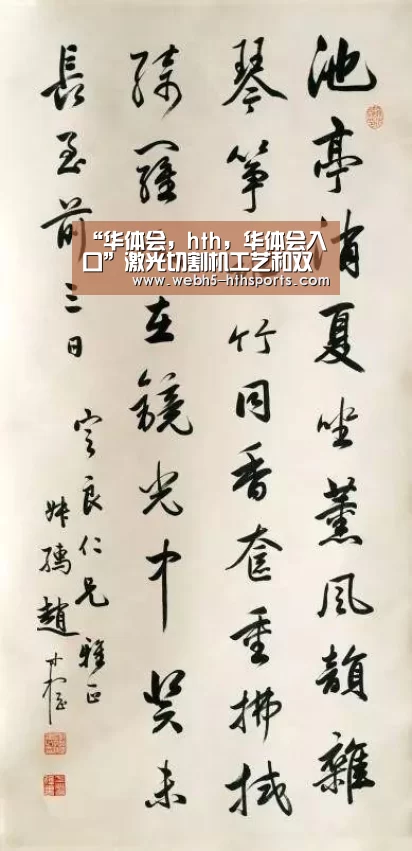 池亭消夏坐薰風韻雜
琴筝竹同香奩重拂拭
綺羅在鏡光中癸未
長至前三日
良仁兄雅正
叔孺趙時棡
“华体会，hth，华体会入
口”激光切割机工艺和双
www.webh5-hthsports.com